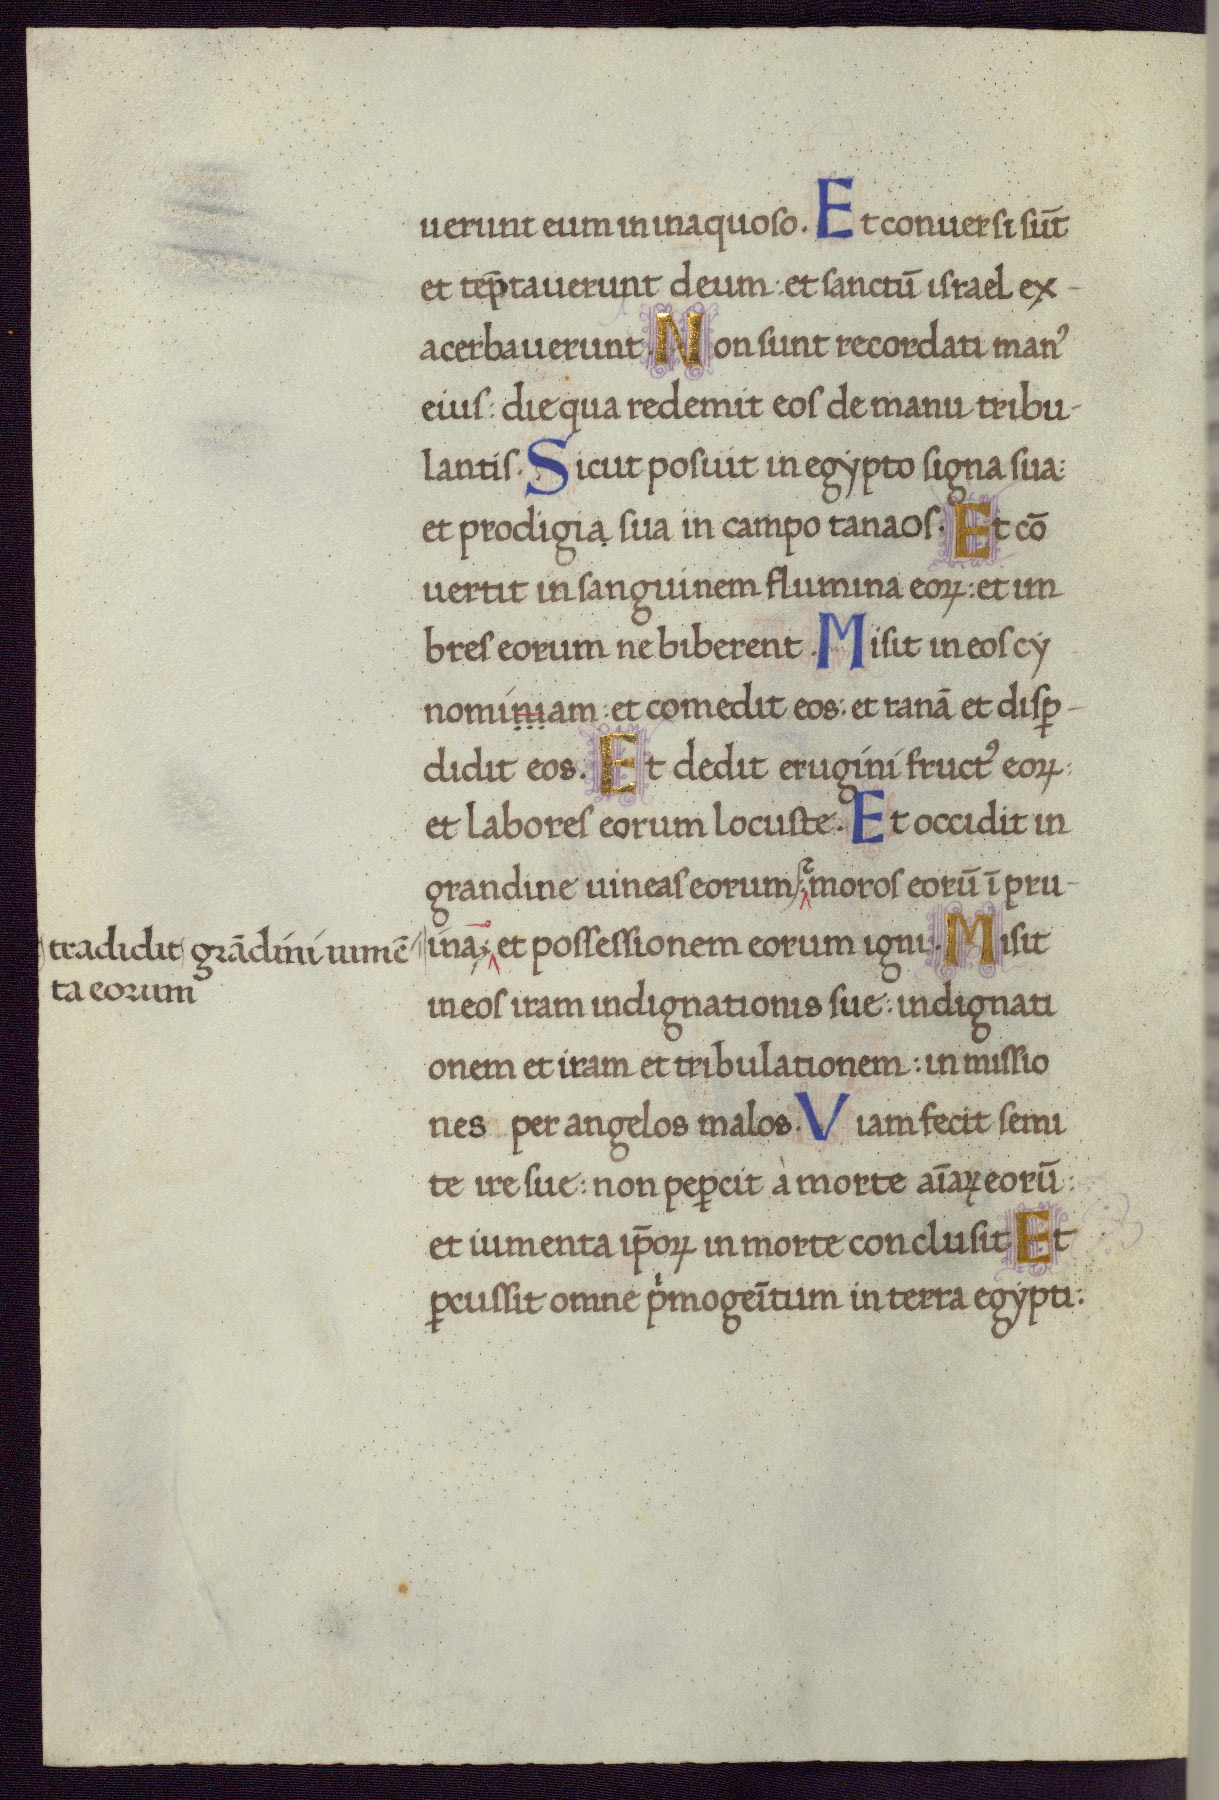 uerunt eum in inaquoso. Et conuersi sūt
et tep̄tauerunt deum: et sanctū israel ex-
acerbauerunt. Non sunt recordati manꝰ
eius: die qua redemit eos de manu tribu-
lantis. Sicut posuit in egẏpto signa sua:
et prodigia sua in campo tanaos. Et cō
uertit in sanguinem flumina eoꝝ: et im
bres eorum ne biberent. Misit in eos cẏ
nominiam: et comedit eos: et ranā et disꝑ-
didit eos. Et dedit erugini fructꝰ eoꝝ:
et labores eorum locuste. Et occidit in
grandine uineas eorum: et moros eorū ī pru-
ina: et possessionem eorum igni. Misit
tradidit grādini iumē
ta eorum
in eos iram indignationis sue: indignati
onem et iram et tribulationem: inmissio
nes per angelos malos. Viam fecit semi
te ire sue: non peꝑcit à morte aīaꝝ eorū:
et iumenta ip̄oꝝ in morte conclusit Et
ꝑcussit omne pͥmogeītum in terra egẏpti: